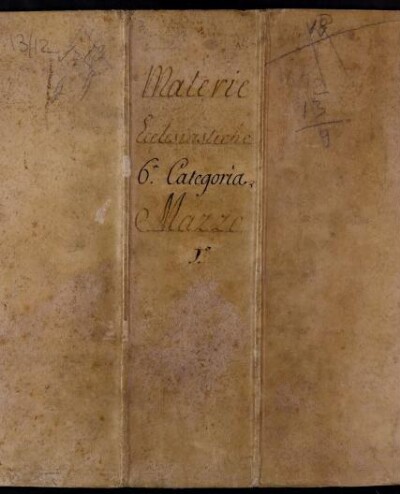 13/12
Materie
Ecclesiastiche
6.ª Categoria.
Mazzo
1.º
18
13
9